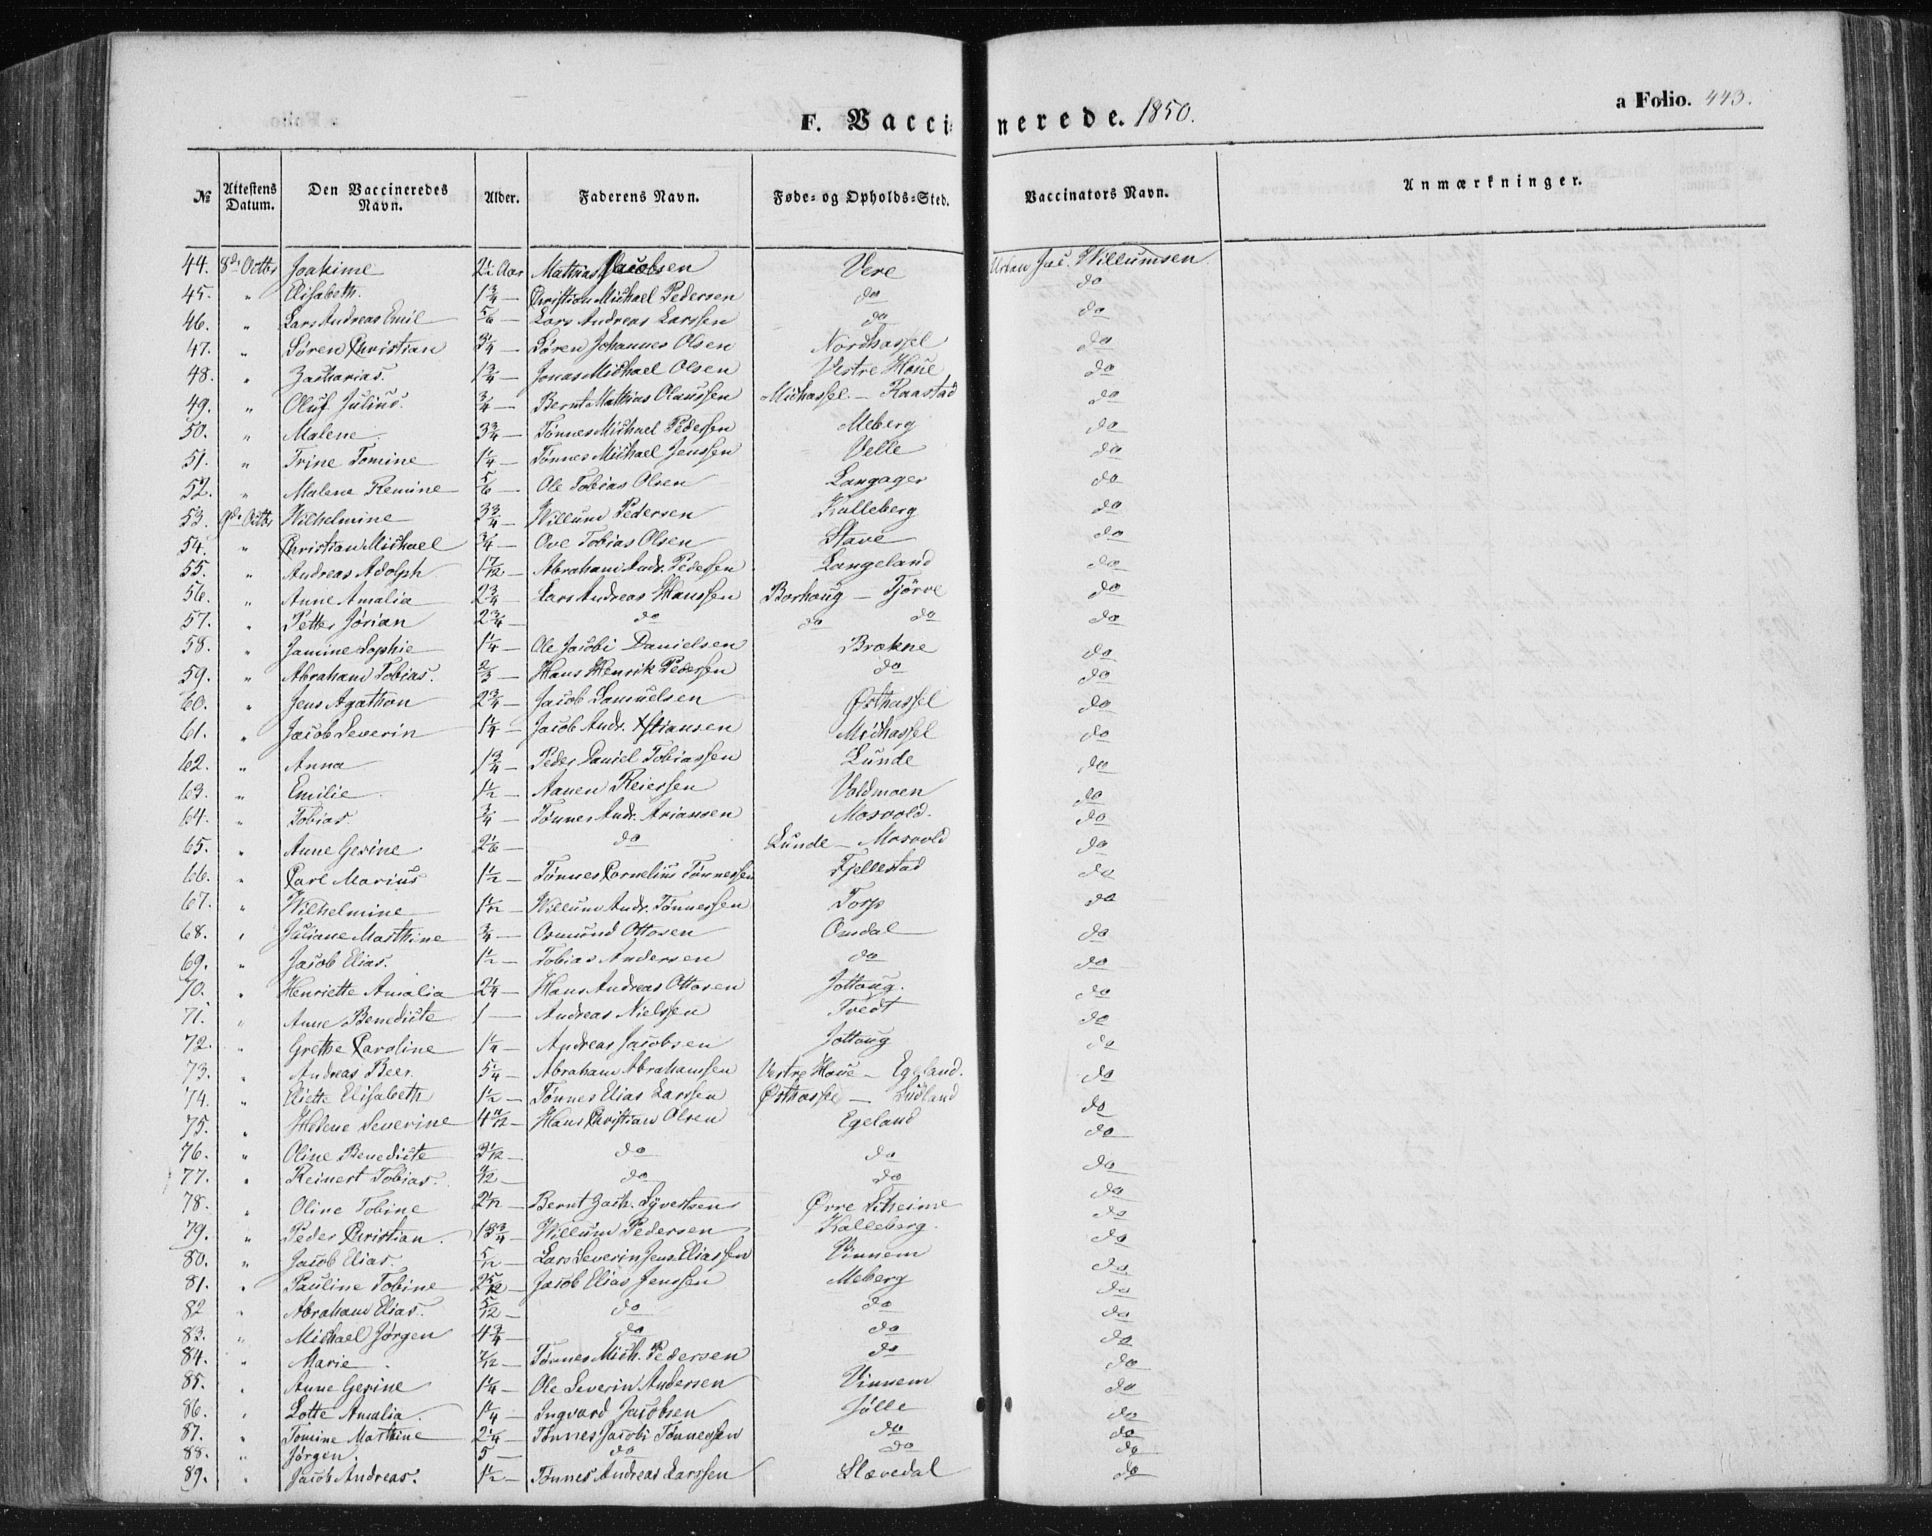 a Folio. 443.
F. Vaccinerede. 1850.
№ Attestens Datum. Den Vaccineredes Navn. Alder. Faderens Navn. Føde- og Opholds-Sted. Vaccinators Navn. Anmærkninger.
44. 8de Octbr Joakime 2½ Aar Mathias Jacobsen Vere Urban Jac. Willumsen
45. " Elisabeth. 1¾ — Christian Michael Pedersen do do
46. " Lars Andreas Emil 5/6 — Lars Andreas Larssen do do
47. " Søren Christian 3¼ — Søren Johannes Olsen Nordhassel do
48. " Zacharias. 1¾ — Jonas Michael Olsen Vestre Houe do
49. " Oluf Julius. ¾ — Bernt Mathias Olaussen Midhassel — Raastad do
50. " Malene 3¾ — Tønnes Michael Pedersen Meberg do
51. " Trine Tomine 1¼ — Tønnes Michael Jenssen Velle do
52. " Malene Remine 5/6 — Ole Tobias Olsen Langager do
53. 9de Octbr Wilhelmine 3¾ — Willum Pedersen Kalleberg do
54. " Christian Michael ¾ — Ove Tobias Olsen Stave do
55. " Andreas Adolph 1 7/12 — Abraham Andr. Pedersen Langeland do
56. " Anne Amalia 2¾ — Lars Andreas Hanssen Borhaug — Tjørve do
57. " Petter Jørian 2¾ — do do do do
58. " Jamine Sophie 1¼ — Ole Jacobi Danielsen Brækne do
59. " Abraham Tobias. ⅔ — Hans Henrik Pedersen do do
60. " Jens Agathon 2¾ — Jacob Samuelsen Østhassel do
61. " Jacob Severin 1¼ — Jacob Andr. Xstiansen Midhassel do
62. " Anna 1¾ — Peder Daniel Tobiassen Lunde do
63. " Emilie 1½ — Aanen Reierssen Voldmoen do
64. " Tobias ¾ — Tønnes Andr. Ariansen Mosvold. do
65. " Anne Gesine 2 1/6 — do Lunde — Mosvold do
66. " Carl Marius 1½ — Tønnes Cornelius Tønnessen Fjellestad do
67. " Wilhelmine 1 1/12 — Willum Andr. Tønnessen Torp do
68. " Juliane Marthine ¾ — Osmund Ottosen Omdal do
69. " Jacob Elias. 1½ — Tobias Andersen do do
70. " Henriette Amalia 2¼ — Hans Andreas Ottosen Jottoug. do
71. " Anne Benedicte 1 — Andreas Nielssen Tvedt do
72. " Grethe Caroline 1¼ — Andreas Jacobsen Jottoug do
73. " Andreas Beer. 5¼ — Abraham Abrahamssen Vestre Houe — Egeland. do
74. " Eliette Elisabeth 1½ — Tønnes Elias Larssen Østhassel — Sudland do
75. " Helene Severine 4 11/12 — Hans Christian Olsen Egeland do
76. " Oline Benedicte 3 1/12 — do do do
77. " Reinert Tobias. 9/12 — do do do
78. " Oline Tobine 2 1/12 — Bernt Zach. Syvertsen Øvre Stheime do
79. " Peder Christian. 18¾ — Willum Pedersen Kalleberg. do
80. " Jacob Elias. 5/12 — Lars Severin Jens Eliassen Vinnem do
81. " Pauline Tobine 2 5/12 — Jacob Elias Jenssen Meberg do
82 " Abraham Elias. 5/12 — do do do
83. " Michael Jørgen 4¾ — do do do
84. " Marie 7/12 — Tønnes Mich. Pedersen do do
85. " Anne Gesine 1¼ — Ole Severin Andersen Vinnem do
86. " Lotte Amalia. 1¼ — Ingvard Jacobsen Jølle do
87. " Tomine Marthine 2¼ — Tønnes Jacobi Tønnessen do do
88. " Jørgen. 5 — do do do
89. " Jacob Andreas. 1½ — Tønnes Andreas Larssen Slævedal do